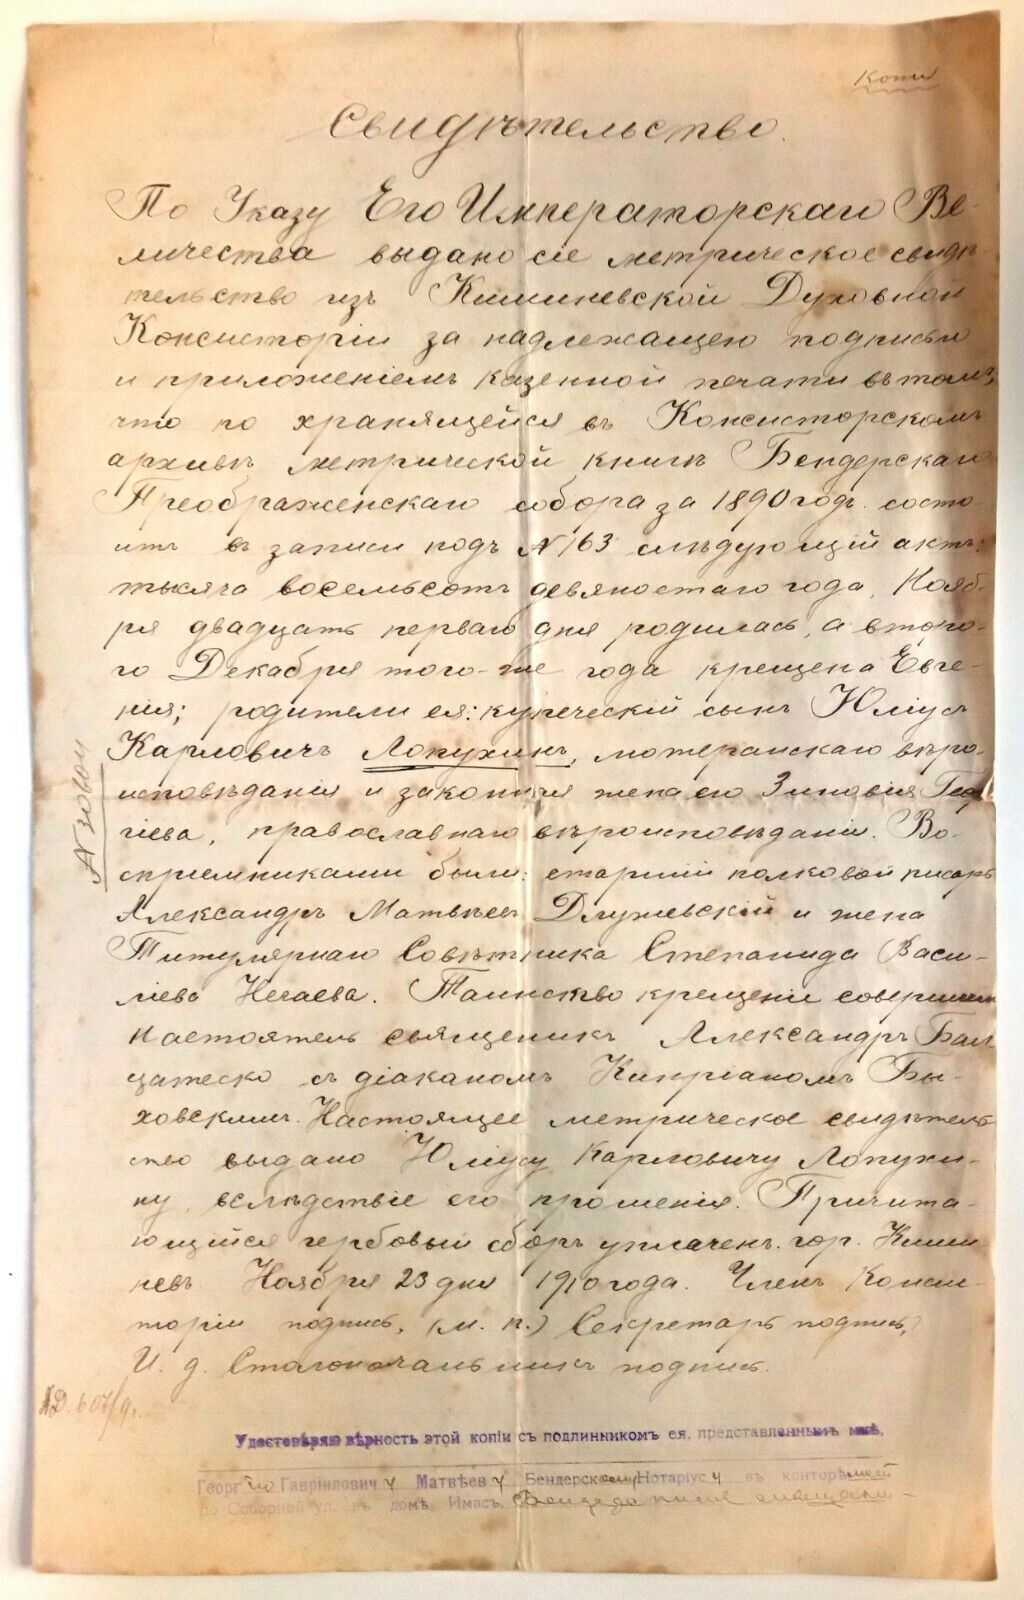 Копія
Свидѣтельство.
По Указу Его Императорскаго Ве-
личества выдано сіе метрическое свидѣ-
тельство изъ Кишиневской Духовной
Консисторіи за надлежащею подписью
и приложеніемъ казенной печати въ томъ,
что по хранящейся въ Консисторскомъ
архивѣ метрической книгѣ Бендерскаго
Преображенскаго собора за 1890 годъ состо-
итъ въ записи подъ №163 слѣдующій актъ:
тысяча восемьсотъ девяностаго года, Нояб-
ря двадцать перваго дня родилась, а второ-
го Декабря того-же года крещена Евге-
нія; родители ея: купеческій сынъ Юліусъ
Карловичъ Лопухинъ, лютеранскаго вѣро-
исповѣданія и законная жена его Зиновія Геор
гіева, православнаго вѣроисповѣданія. Во-
спріемниками были: старшій полковой писарь
Александръ Матвѣевъ Длужевскій и жена
Титулярнаго Совѣтника Степанида Васи-
ліева Нечаева. Таинство крещенія совершили
Настоятель священникъ Александръ Бал
цатеско съ діакономъ Кипріаномъ Бы-
ховскимъ. Настоящее метрическое свидѣтель
ство выдано Юліусу Карловичу Лопухи-
ну, вслѣдствіе его прошенія. Причита-
ющійся гербовый сборъ уплаченъ. гор. Киши
невъ Ноября 23 дня 1910 года. Членъ Конси-
торіи подпись, (м. п.) Секретарь подпись,
И. д. Столоначальникъ подпись.
Удостовѣряю вѣрность этой копіи съ подлинникомъ ея, представленнымъ мнѣ,
Георгію Гавріиловичу Матвѣеву, Бендерскому Нотаріусу въ конторѣ моей
по Соборной ул. въ домѣ Имасъ,